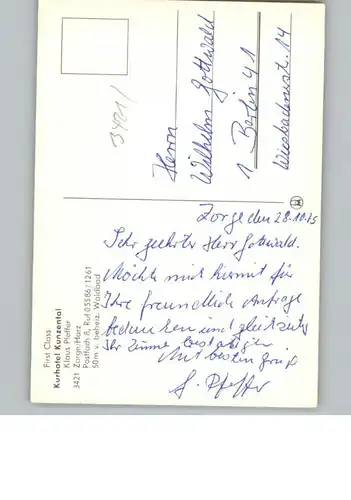 First Class
Kurhotel Kunzental
Klaus Pfeffer
3421 Zorge/Harz
Postfach 8, Ruf 05586/1261
50m v. beheiz. Waldbad
3421/
Herrn
Wilhelm Gottwald
1 Berlin 41
Wiesbadenerstr. 14
Zorge den 28.10.75
Sehr geehrter Herr Gottwald.
Möchte mich hiermit für
Ihre freundliche Anfrage
bedanken und gleichzeitig
Ihr Zimmer bestätigen
Mit besten Gruß
Pfeffer